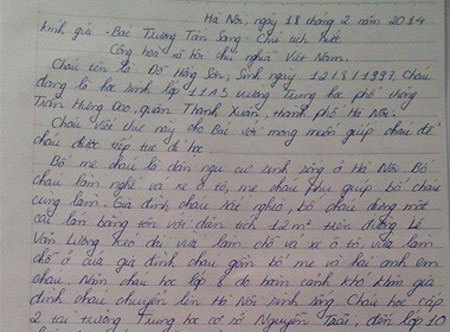 Hà Nội, ngày 18 tháng 2 năm 2014
kính gửi: Bác Trương Tấn Sang - Chủ tịch Nước
Cộng hoà xã hội chủ nghĩa Việt Nam.
Cháu tên là Đỗ Hồng Sơn, Sinh ngày 12/8/1997, Cháu
đang là học sinh lớp 11A5 trường Trung học phổ thông
Trần Hưng Đạo, quận Thanh Xuân, thành phố Hà Nội.
Cháu Viết thư này cho Bác với mong muốn giúp cháu để
cháu được tiếp tục đi học.
Bố mẹ cháu là dân ngụ cư sinh sống ở Hà Nội. Bố
cháu làm nghề vá xe ô tô, mẹ cháu phụ giúp bố cháu
cùng làm. Gia đình cháu rất nghèo, bố cháu dựng một
cái lán bằng tôn với diện tích 12m² trên đường Lê
Văn Lương kéo dài vừa làm chỗ vá xe ô tô, vừa làm
chỗ ở của gia đình cháu gồm bố mẹ và hai anh em
cháu. Năm cháu học lớp 8 do hoàn cảnh khó khăn gia
đình cháu chuyển lên Hà Nội sinh sống. Cháu học cấp
2 tại trường Trung học cơ sở Nguyễn Trãi, đến lớp 10